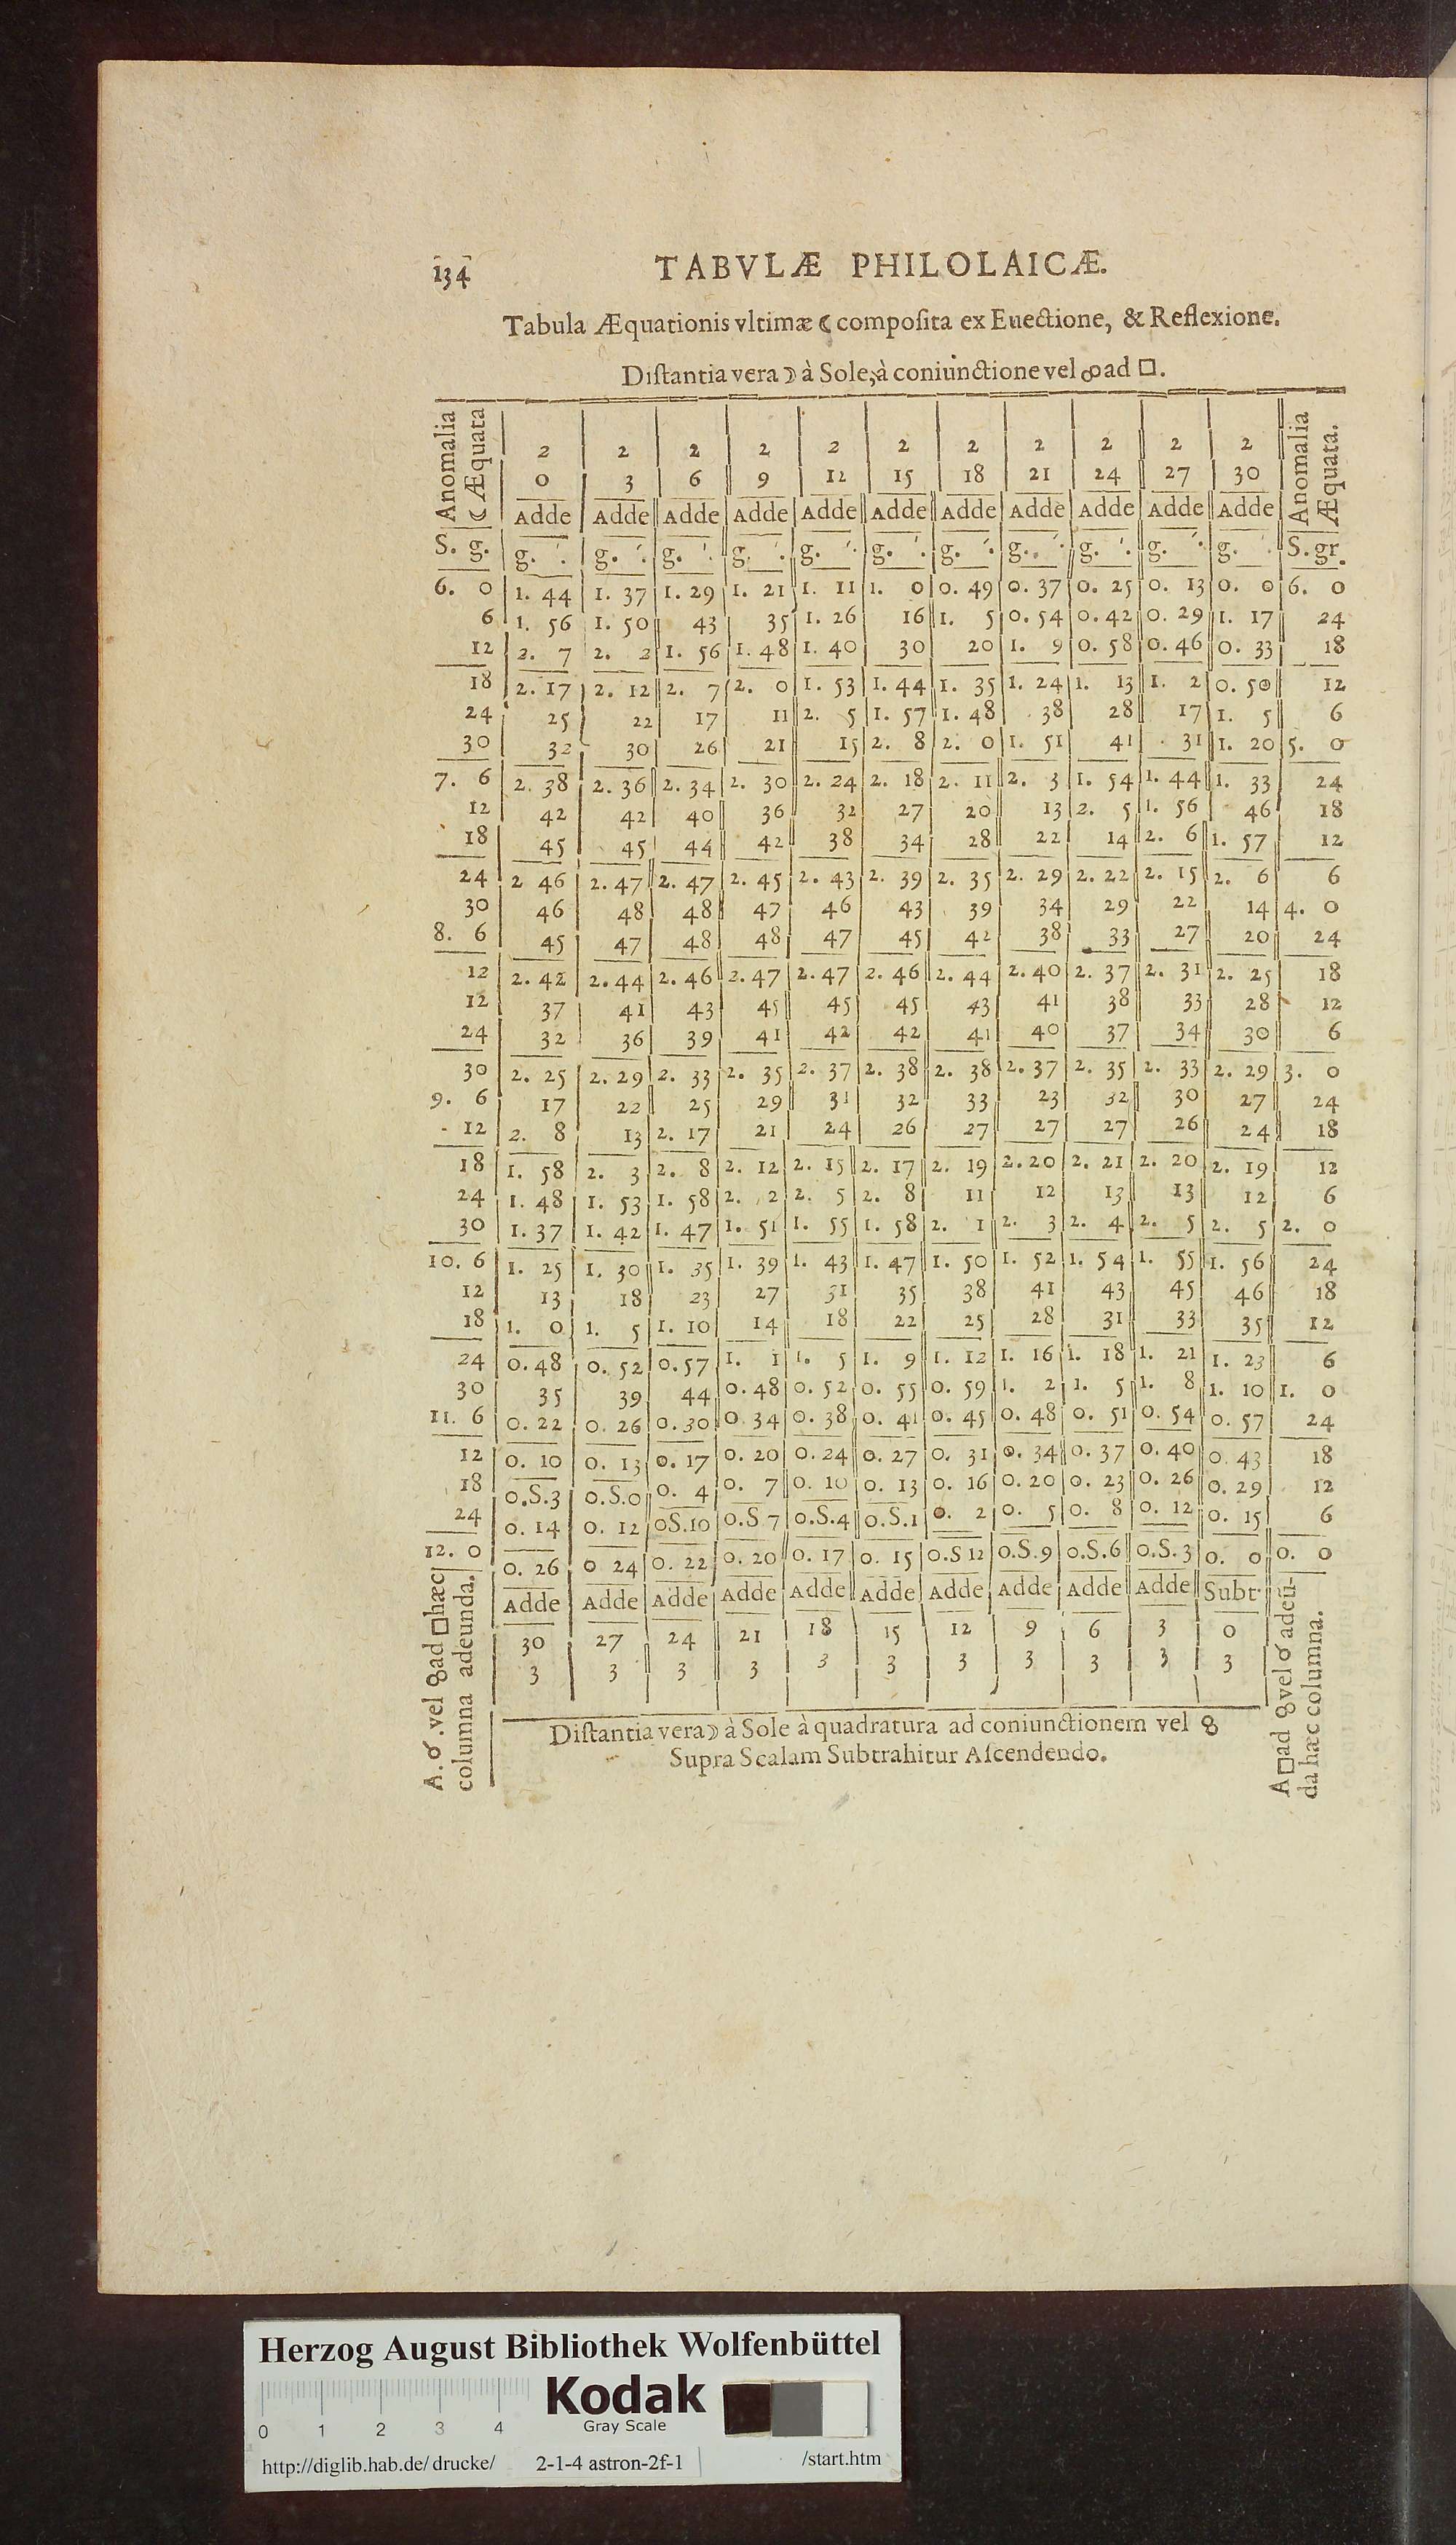 134 TABVLÆ PHILOLAICÆ.
Tabula Æquationis vltimæ ☾ compoſita ex Euectione, & Reflexione.
Diſtantia vera ☽ à Sole, à coniunctione vel ☍ ad □.
Anomalia ☾ Æquata | 2 | 2 | 2 | 2 | 2 | 2 | 2 | 2 | 2 | 2 | 2 | Anomalia Æquata.
0 | 3 | 6 | 9 | 12 | 15 | 18 | 21 | 24 | 27 | 30
Adde | Adde | Adde | Adde | Adde | Adde | Adde | Adde | Adde | Adde | Adde
S. g. | g. ′. | g. ′. | g. ′. | g. ′. | g. ′. | g. ′. | g. ′. | g. ′. | g. ′. | g. ′. | g. ′. | S. gr.
6. 0 | 1. 44 | 1. 37 | 1. 29 | 1. 21 | 1. 11 | 1. 0 | 0. 49 | 0. 37 | 0. 25 | 0. 13 | 0. 0 | 6. 0
6 | 1. 56 | 1. 50 | 43 | 35 | 1. 26 | 16 | 1. 5 | 0. 54 | 0. 42 | 0. 29 | 1. 17 | 24
12 | 2. 7 | 2. 2 | 1. 56 | 1. 48 | 1. 40 | 30 | 20 | 1. 9 | 0. 58 | 0. 46 | 0. 33 | 18
18 | 2. 17 | 2. 12 | 2. 7 | 2. 0 | 1. 53 | 1. 44 | 1. 35 | 1. 24 | 1. 13 | 1. 2 | 0. 50 | 12
24 | 25 | 22 | 17 | 11 | 2. 5 | 1. 57 | 1. 48 | 38 | 28 | 17 | 1. 5 | 6
30 | 32 | 30 | 26 | 21 | 15 | 2. 8 | 2. 0 | 1. 51 | 41 | 31 | 1. 20 | 5. 0
7. 6 | 2. 38 | 2. 36 | 2. 34 | 2. 30 | 2. 24 | 2. 18 | 2. 11 | 2. 3 | 1. 54 | 1. 44 | 1. 33 | 24
12 | 42 | 42 | 40 | 36 | 32 | 27 | 20 | 13 | 2. 5 | 1. 56 | 46 | 18
18 | 45 | 45 | 44 | 42 | 38 | 34 | 28 | 22 | 14 | 2. 6 | 1. 57 | 12
24 | 2 46 | 2. 47 | 2. 47 | 2. 45 | 2. 43 | 2. 39 | 2. 35 | 2. 29 | 2. 22 | 2. 15 | 2. 6 | 6
30 | 46 | 48 | 48 | 47 | 46 | 43 | 39 | 34 | 29 | 22 | 14 | 4. 0
8. 6 | 45 | 47 | 48 | 48 | 47 | 45 | 42 | 38 | 33 | 27 | 20 | 24
12 | 2. 42 | 2. 44 | 2. 46 | 2. 47 | 2. 47 | 2. 46 | 2. 44 | 2. 40 | 2. 37 | 2. 31 | 2. 25 | 18
12 | 37 | 41 | 43 | 45 | 45 | 45 | 43 | 41 | 38 | 33 | 28 | 12
24 | 32 | 36 | 39 | 41 | 42 | 42 | 41 | 40 | 37 | 34 | 30 | 6
30 | 2. 25 | 2. 29 | 2. 33 | 2. 35 | 2. 37 | 2. 38 | 2. 38 | 2. 37 | 2. 35 | 2. 33 | 2. 29 | 3. 0
9. 6 | 17 | 22 | 25 | 29 | 31 | 32 | 33 | 23 | 32 | 30 | 27 | 24
12 | 2. 8 | 13 | 2. 17 | 21 | 24 | 26 | 27 | 27 | 27 | 26 | 24 | 18
18 | 1. 58 | 2. 3 | 2. 8 | 2. 12 | 2. 15 | 2. 17 | 2. 19 | 2. 20 | 2. 21 | 2. 20 | 2. 19 | 12
24 | 1. 48 | 1. 53 | 1. 58 | 2. 2 | 2. 5 | 2. 8 | 11 | 12 | 13 | 13 | 12 | 6
30 | 1. 37 | 1. 42 | 1. 47 | 1. 51 | 1. 55 | 1. 58 | 2. 1 | 2. 3 | 2. 4 | 2. 5 | 2. 5 | 2. 0
10. 6 | 1. 25 | 1. 30 | 1. 35 | 1. 39 | 1. 43 | 1. 47 | 1. 50 | 1. 52 | 1. 54 | 1. 55 | 1. 56 | 24
12 | 13 | 18 | 23 | 27 | 31 | 35 | 38 | 41 | 43 | 45 | 46 | 18
18 | 1. 0 | 1. 5 | 1. 10 | 14 | 18 | 22 | 25 | 28 | 31 | 33 | 35 | 12
24 | 0. 48 | 0. 52 | 0. 57 | 1. 1 | 1. 5 | 1. 9 | 1. 12 | 1. 16 | 1. 18 | 1. 21 | 1. 23 | 6
30 | 35 | 39 | 44 | 0. 48 | 0. 52 | 0. 55 | 0. 59 | 1. 2 | 1. 5 | 1. 8 | 1. 10 | 1. 0
11. 6 | 0. 22 | 0. 26 | 0. 30 | 0 34 | 0. 38 | 0. 41 | 0. 45 | 0. 48 | 0. 51 | 0. 54 | 0. 57 | 24
12 | 0. 10 | 0. 13 | 0. 17 | 0. 20 | 0. 24 | 0. 27 | 0. 31 | 0. 34 | 0. 37 | 0. 40 | 0. 43 | 18
18 | 0.S.3 | 0.S.0 | 0. 4 | 0. 7 | 0. 10 | 0. 13 | 0. 16 | 0. 20 | 0. 23 | 0. 26 | 0. 29 | 12
24 | 0. 14 | 0. 12 | 0S.10 | 0.S 7 | 0.S.4 | 0.S.1 | 0. 2 | 0. 5 | 0. 8 | 0. 12 | 0. 15 | 6
12. 0 | 0. 26 | 0 24 | 0. 22 | 0. 20 | 0. 17 | 0. 15 | 0.S 12 | 0.S.9 | 0.S.6 | 0.S.3 | 0. 0 | 0. 0
Adde | Adde | Adde | Adde | Adde | Adde | Adde | Adde | Adde | Adde | Subt.
30 | 27 | 24 | 21 | 18 | 15 | 12 | 9 | 6 | 3 | 0
3 | 3 | 3 | 3 | 3 | 3 | 3 | 3 | 3 | 3 | 3
A. ☌. vel ☍ ad □ hæc
columna adeunda.
A □ ad ☍ vel ☌ adeū-
da hæc columna.
Diſtantia vera ☽ à Sole à quadratura ad coniunctionem vel ☍
Supra Scalam Subtrahitur Aſcendendo.
Herzog August Bibliothek Wolfenbüttel
Kodak
Gray Scale
0 1 2 3 4
http://diglib.hab.de/drucke/ 2-1-4 astron-2f-1 /start.htm